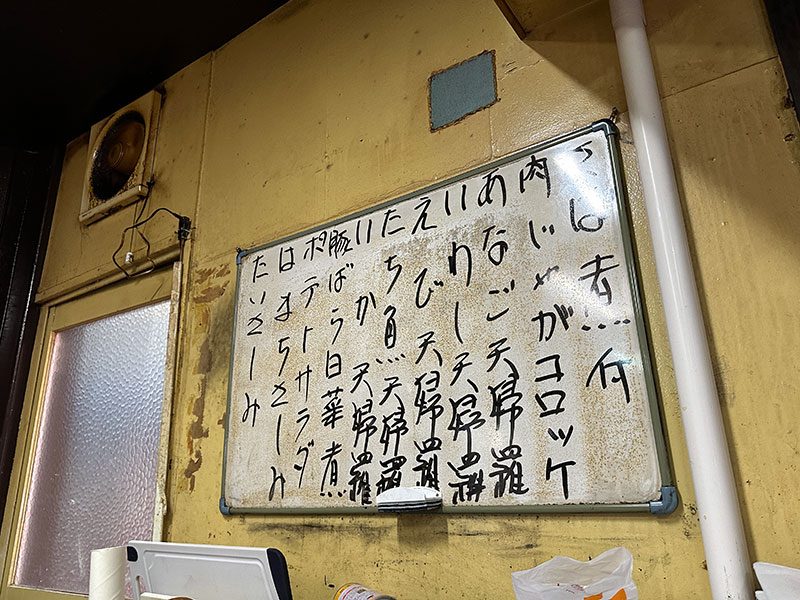 さば煮付
肉じゃがコロッケ
あなご天婦羅
いわし天婦羅
えび天婦羅
たち魚天婦羅
いか天婦羅
豚ばら白菜煮
ポテトサラダ
はまちさしみ
たいさしみ